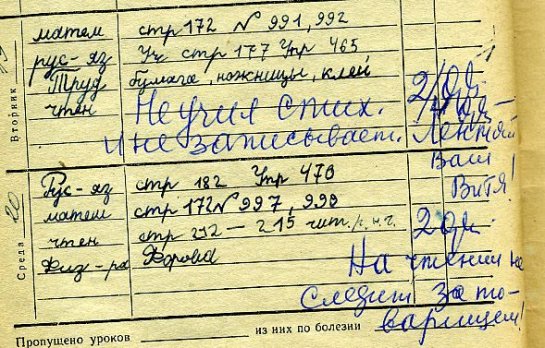 Вторник 19
матем стр 172 N 991, 992
рус-яз Уч стр 177 Упр 465
Труд бумага, ножницы, клей
чтен Не учил стих. 2/дв
и не записывает. Лентяй
Ваш
Витя!
Среда 20
Рус-яз стр 182 Упр 470
матем стр 172 N 997, 998
чтен стр 212 – 215 чит. 2 дв.
Физ-ра Форма
На чтении не
следит за то-
варищем!
Пропущено уроков из них по болезни